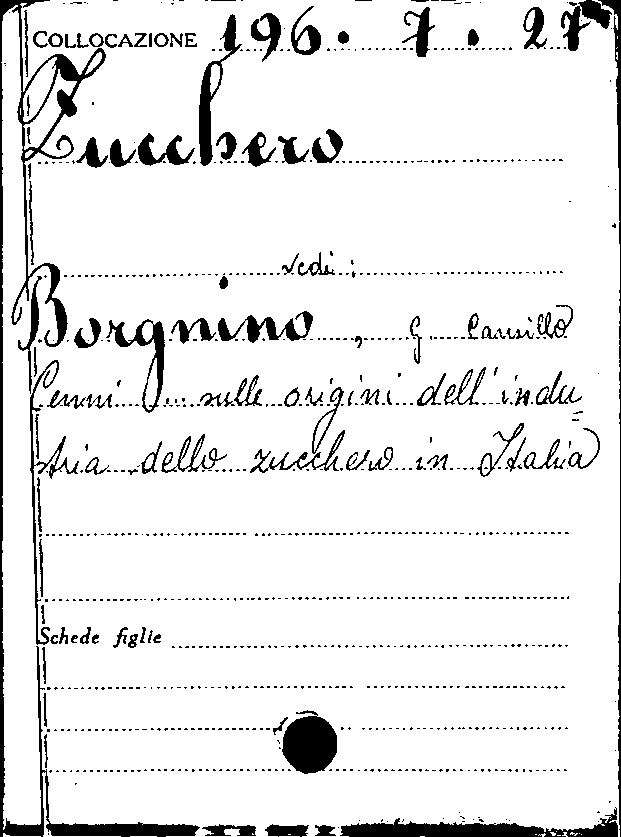 COLLOCAZIONE 196. 7. 27
Zucchero
vedi:
Borgnino, G. Camillo
Cenni ... sulle origini dell'indu=
stria dello zucchero in Italia
Schede figlie